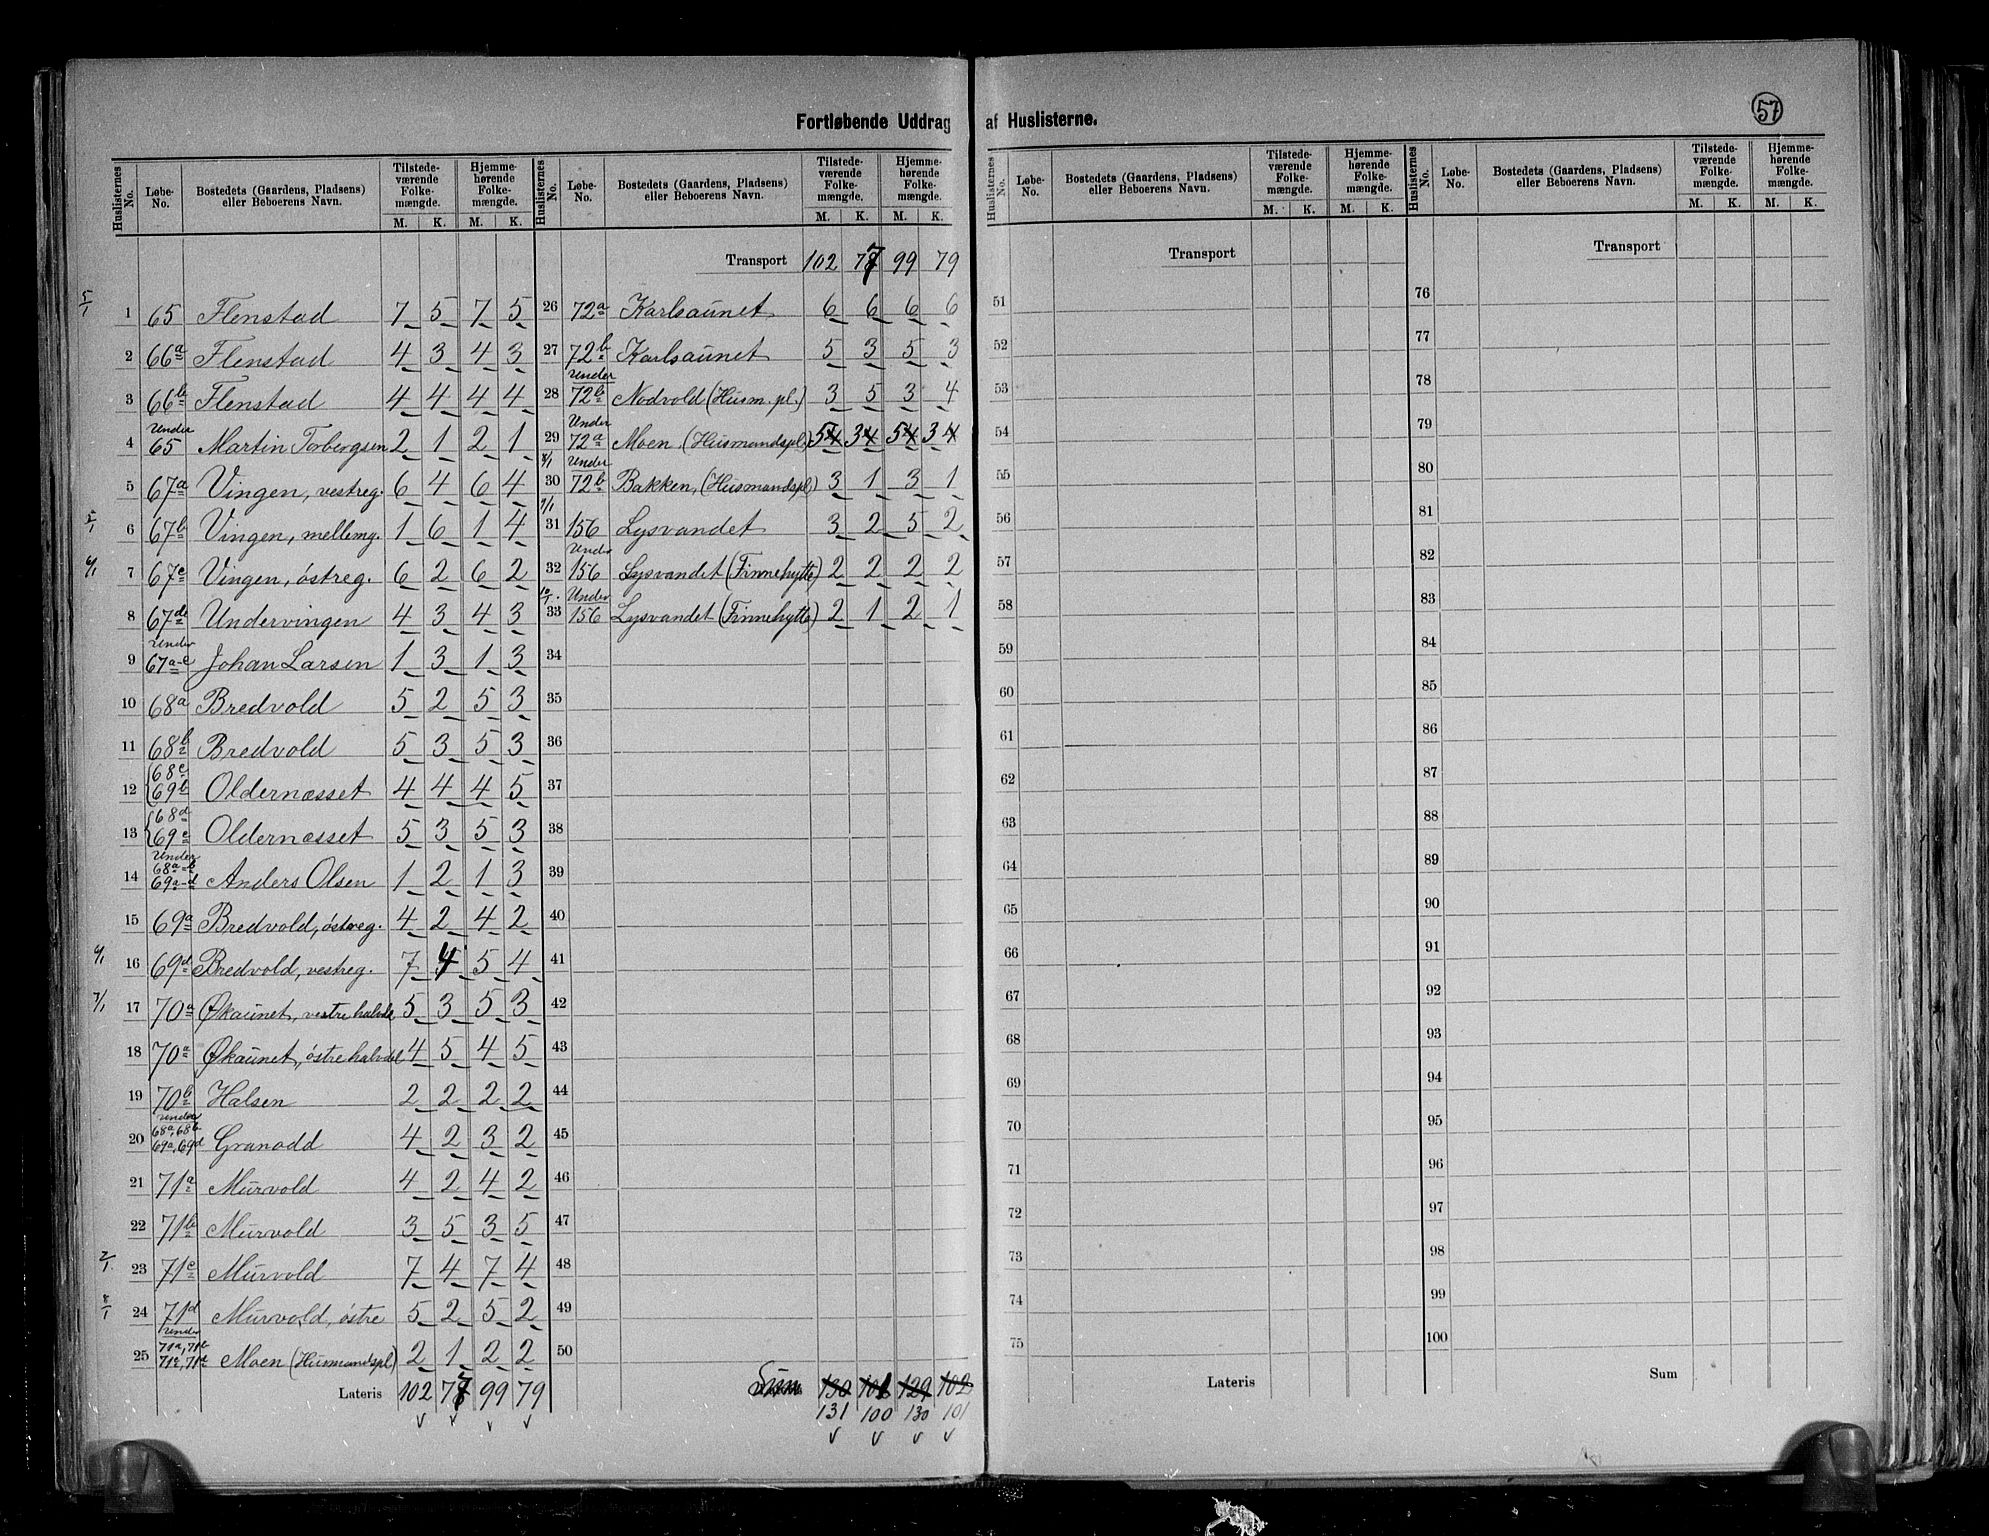 Fortløbende Uddrag af Huslisterne.
57
Huslisternes No. Løbe-No. Bostedets (Gaardens, Pladsens) eller Beboerens Navn. Tilstedeværende Folkemængde. M. K. Hjemmehørende Folkemængde. M. K.
5/1 1 65 Flenstad 7 5 7 5
2 66a Flenstad 4 3 4 3
3 66b Flenstad 4 4 4 4
4 Under 65 Martin Torbergsen 2 1 2 1
5 67a Vingen, vestreg. 6 4 6 4
5/1 6 67b Vingen, mellemg. 1 6 1 4
6/1 7 67c Vingen, östreg. 6 2 6 2
8 67de Undervingen 4 3 4 3
9 Under 67a-e Johan Larsen 1 3 1 3
10 68a Bredvold 5 2 5 3
11 68b Bredvold 5 3 5 3
12 68c 69b Oldernæsset 4 4 4 5
13 68d 69c Oldernæsset 5 3 5 3
14 Under 68a-b 69a-d Anders Olsen 1 2 1 3
15 69a Bredvold, östreg. 4 2 4 2
6/1 16 69d Bredvold, vestreg. 7 4 5 4
7/1 17 70a Økaunet, vestre halvdel 5 3 5 3
18 70a Økaunet, östre halvdel 4 5 4 5
19 70b Halsen 2 2 2 2
20 Under 68a, 68b 69a, 69d Granodd 4 2 3 2
21 71a Murvold 4 2 4 2
22 71b Murvold 3 5 3 5
7/1 23 71c Murvold 7 4 7 4
8/1 24 71d Murvold, östre 5 2 5 2
25 Under 71a, 71b 71c, 71d Moen (Husmandspl.) 2 1 2 2
Lateris 102 77 99 79
Huslisternes No. Løbe-No. Bostedets (Gaardens, Pladsens) eller Beboerens Navn. Tilstedeværende Folkemængde. M. K. Hjemmehørende Folkemængde. M. K.
Transport 102 77 99 79
26 72a Karlsaunet 6 6 6 6
27 72b Karlsaunet 5 3 5 3
28 Under 72b Nodvold (Husm. pl.) 3 5 3 4
29 Under 72a Moen (Husmandspl.) 5 4 3 4 5 4 3 4
8/1 30 Under 72b Bakken, (Husmandspl.) 3 1 3 1
9/1 31 156 Lysvandet 3 2 5 2
32 Under 156 Lysvandet (Finnehytte) 2 2 2 2
10/1. 33 Under 156 Lysvandet (Finnehytte) 2 1 2 1
34
35
36
37
38
39
40
41
42
43
44
45
46
47
48
49
50
Sum 130 101 129 102
131 100 130 101
Huslisternes No. Løbe-No. Bostedets (Gaardens, Pladsens) eller Beboerens Navn. Tilstedeværende Folkemængde. M. K. Hjemmehørende Folkemængde. M. K.
Transport
51
52
53
54
55
56
57
58
59
60
61
62
63
64
65
66
67
68
69
70
71
72
73
74
75
Lateris
Huslisternes No. Løbe-No. Bostedets (Gaardens, Pladsens) eller Beboerens Navn. Tilstedeværende Folkemængde. M. K. Hjemmehørende Folkemængde. M. K.
Transport
76
77
78
79
80
81
82
83
84
85
86
87
88
89
90
91
92
93
94
95
96
97
98
99
100
Sum